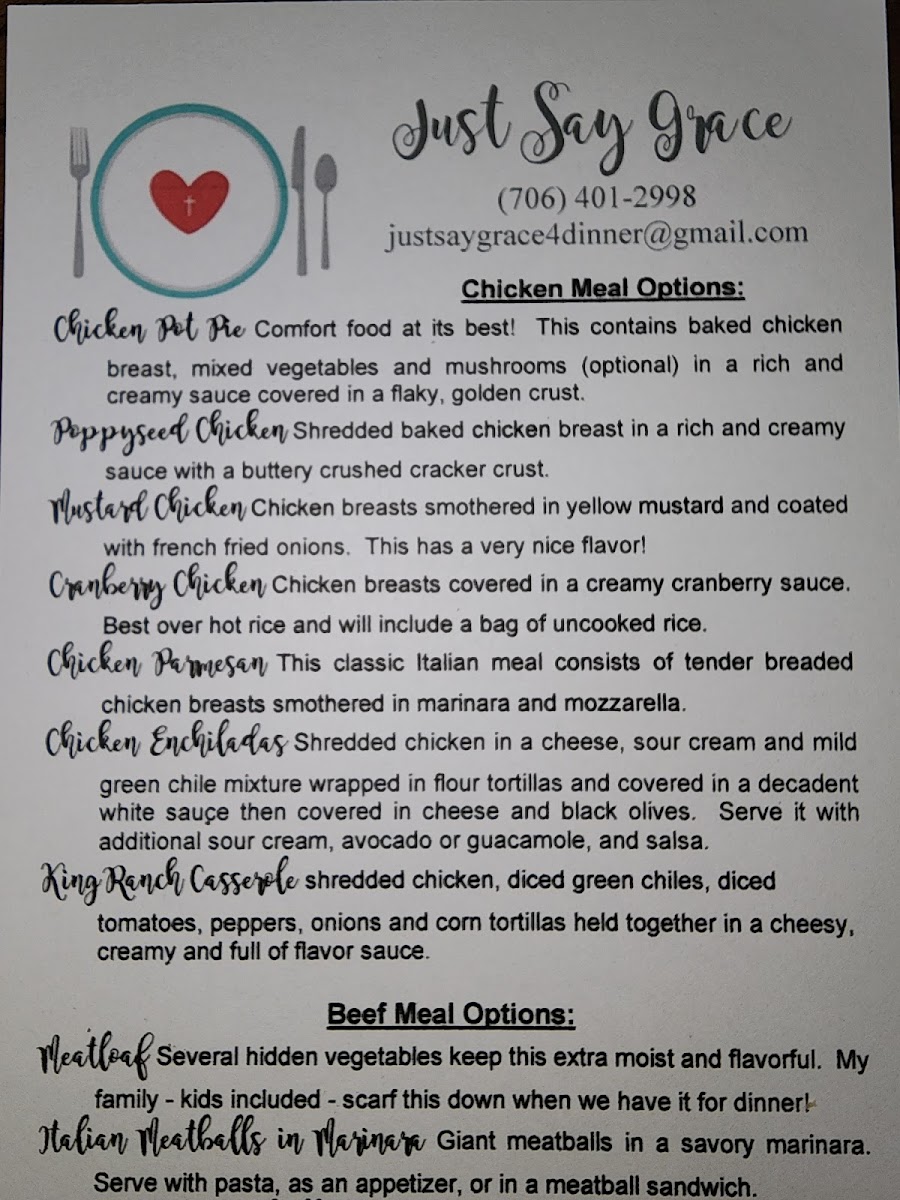 Just Say Grace
(706) 401-2998
justsaygrace4dinner@gmail.com
Chicken Meal Options:
Chicken Pot Pie Comfort food at its best! This contains baked chicken
breast, mixed vegetables and mushrooms (optional) in a rich and
creamy sauce covered in a flaky, golden crust.
Poppyseed Chicken Shredded baked chicken breast in a rich and creamy
sauce with a buttery crushed cracker crust.
Mustard Chicken Chicken breasts smothered in yellow mustard and coated
with french fried onions. This has a very nice flavor!
Cranberry Chicken Chicken breasts covered in a creamy cranberry sauce.
Best over hot rice and will include a bag of uncooked rice.
Chicken Parmesan This classic Italian meal consists of tender breaded
chicken breasts smothered in marinara and mozzarella.
Chicken Enchiladas Shredded chicken in a cheese, sour cream and mild
green chile mixture wrapped in flour tortillas and covered in a decadent
white sauce then covered in cheese and black olives. Serve it with
additional sour cream, avocado or guacamole, and salsa.
King Ranch Casserole shredded chicken, diced green chiles, diced
tomatoes, peppers, onions and corn tortillas held together in a cheesy,
creamy and full of flavor sauce.
Beef Meal Options:
Meatloaf Several hidden vegetables keep this extra moist and flavorful. My
family - kids included - scarf this down when we have it for dinner!
Italian Meatballs in Marinara Giant meatballs in a savory marinara.
Serve with pasta, as an appetizer, or in a meatball sandwich.